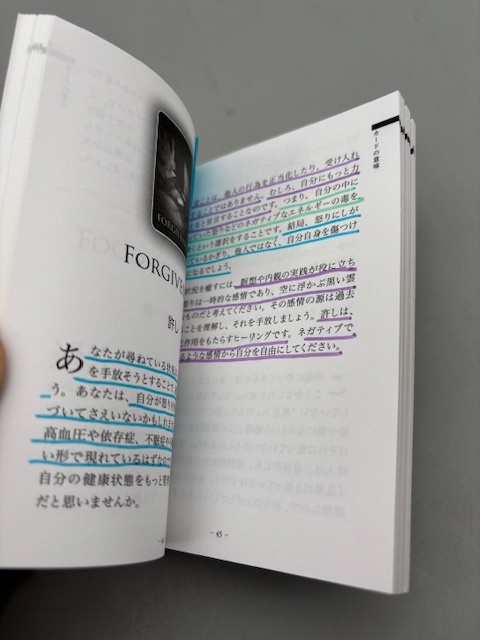 FORGIV
FORGIV
許し
あなたが尋ねている状
を手放そうとすることで
う。あなたは、自分が怒り
づいてさえいないかもしれま
高血圧や依存症、不眠症や
い形で現れているはずの
自分の健康状態をもっと
だと思いませんか。
カードの意味
ことは、他人の行為を正当化したり、受け入れ
ることではありません。むしろ、自分にもっと力
と宣言することなのです。つまり、自分の中に
いた怒りなどのネガティブなエネルギーの毒を
という選択をすることです。結局、怒りにしが
いるかぎり、他人ではなく、自分自身を傷つけ
になるでしょう。
状況を癒すには、瞑想や内観の実践が役に立ち
怒りは一時的な感情であり、空に浮かぶ黒い雲
ものだと考えてください。その感情の源は過去
ことを理解し、それを手放しましょう。許しは、
作用をもたらすヒーリングです。ネガティブで
るような感情から自分を自由にしてください。
- 45 -